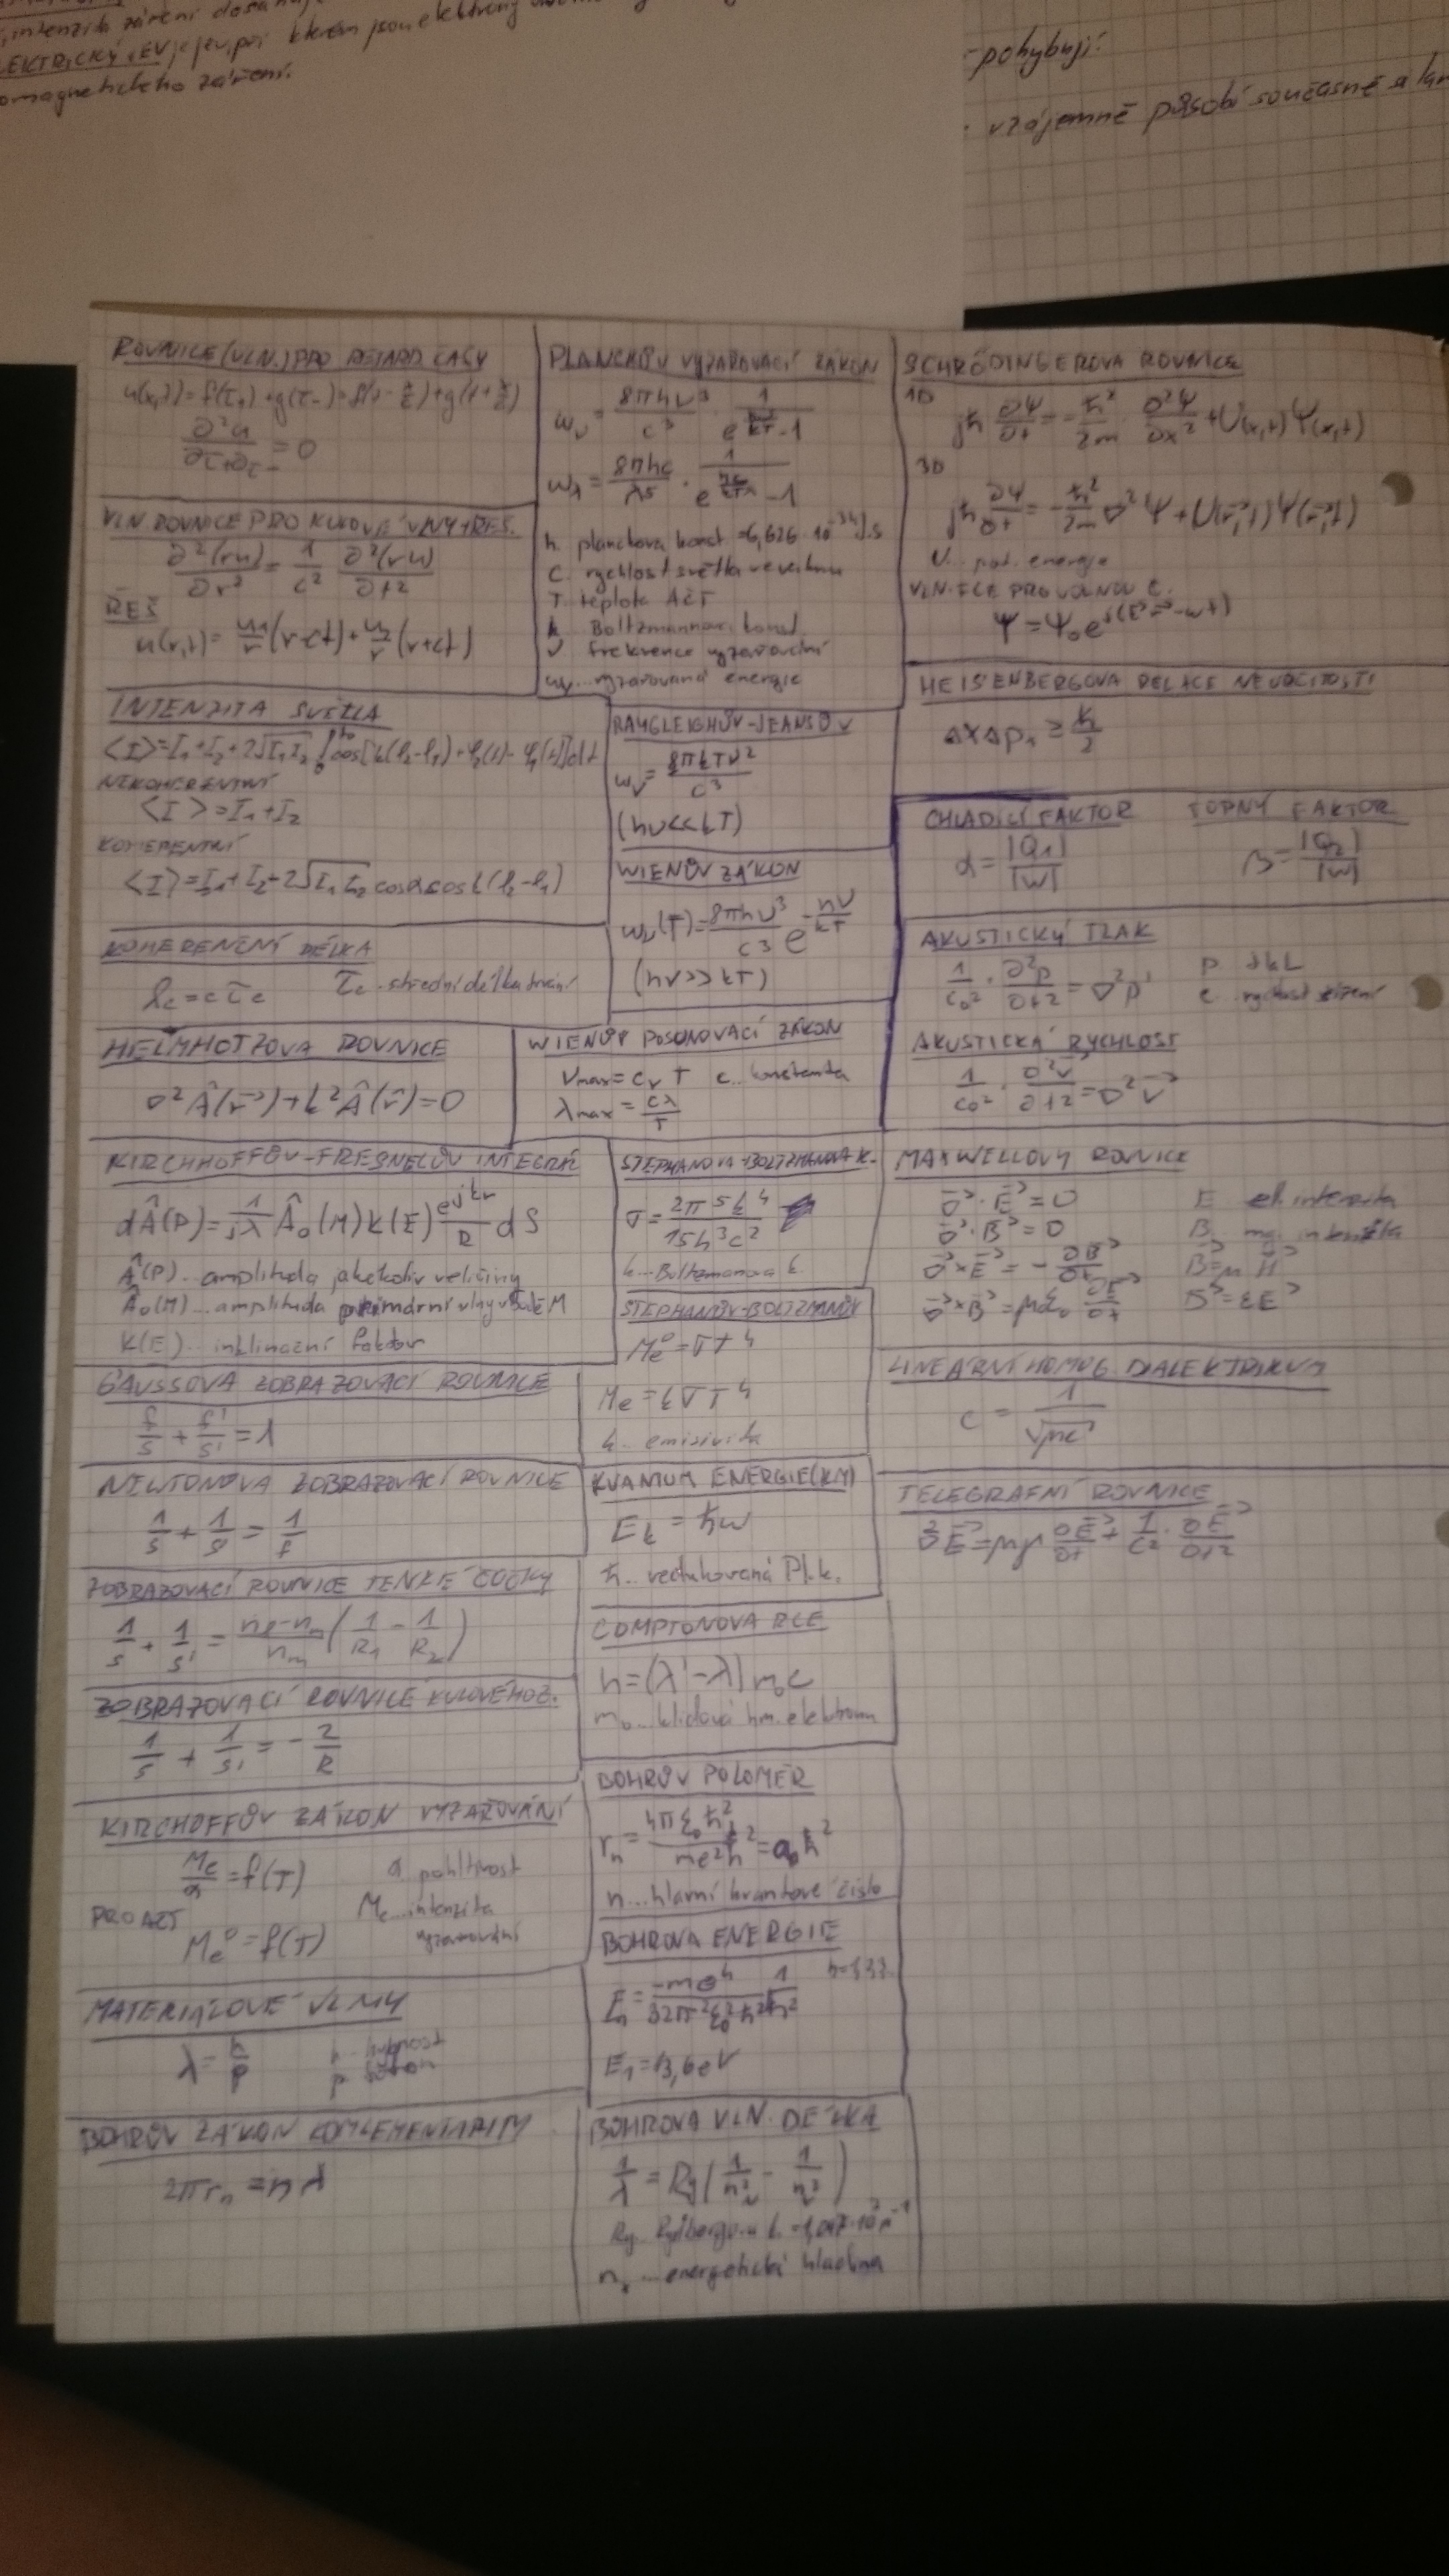 intenzita záření
ELEKTRICKÝ JEV je jev, při kterém jsou elektrony
omagnetického záření.
-pohybují:
vzájemně působí současně a
ROVNICE (VLN.) PRO RETARD ČASY
u(x,t) = f(τ+) + g(τ-) = f(t - x/c) + g(t + x/c)
∂²u/∂τ+∂τ- = 0
VLN. ROVNICE PRO KULOVÉ VLNY + ŘEŠ.
∂²(ru)/∂r² = 1/c² ∂²(ru)/∂t²
ŘEŠ
u(r,t) = u1/r (r-ct) + u2/r (r+ct)
INTENZITA SVĚTLA
NEKOHERENTNÍ
<I> = I1 + I2
KOHERENTNÍ
<I> = I1 + I2 + 2√I1 I2 cosα cos k(l2 - l1)
KOHERENČNÍ DÉLKA
lc = c τc τc..střední délka trvání
HELMHOTZOVA ROVNICE
∇²Â(r→) + k²Â(r→) = 0
KIRCHHOFFŮV-FRESNELŮV INTEGRÁL
dÂ(P) = 1/jλ Â0(M) K(E) e^jkr/R dS
Â(P).. amplituda jakékoliv veličiny
Â0(M)... amplituda primární vlny v bodě M
K(E)... inklinační faktor
GAUSSOVA ZOBRAZOVACÍ ROVNICE
f/s + f'/s' = 1
NEWTONOVA ZOBRAZOVACÍ ROVNICE
1/s + 1/s' = 1/f
ZOBRAZOVACÍ ROVNICE TENKÉ ČOČKY
1/s + 1/s' = nč-nm/nm (1/R1 - 1/R2)
ZOBRAZOVACÍ ROVNICE KULOVÉHO Z.
1/s + 1/s' = -2/R
KIRCHOFFŮV ZÁKON VYZAŘOVÁNÍ
Me/α = f(T) α pohltivost
PRO AČT Me...intenzita
Me° = f(T) vyzařování
MATERIÁLOVÉ VLNY
λ = h/p
BOHRŮV ZÁKON KOMLEMENTARITY
2πrn = nλ
PLANCKŮV VYZAŘOVACÍ ZÁKON
ων = 8πhν³/c³ · 1/e^(hν/kT)-1
ωλ = 8πhc/λ5 · 1/e^(hc/kTλ)-1
h planckova konst = 6,626·10^-34 J.s
c. rychlost světla ve vakuu
T teplota AČT
k Boltzmannova konst.
ν frekvence vyzařování
ων...vyzařovaná energie
RAYGLEIGHŮV-JEANSŮV
ων = 8πkTν²/c³
(hν<<kT)
WIENŮV ZÁKON
ων(T) = 8πhν³/c³ e^-hν/kT
(hν>>kT)
WIENŮV POSUNOVACÍ ZÁKON
νmax = cν T c.. konstanta
λmax = cλ/T
STEPHANOVA-BOLTZMANOVA K.
σ = 2π^5k^4/15h³c²
k...Boltzmanova k.
STEPHANŮV-BOLTZMANŮV
Me° = σT^4
Me = kσT^4
k.. emisivita
KVANTUM ENERGIE(KM)
Ek = ħω
ħ.. redukovaná Pl.k.
COMPTONOVA RCE
h = (λ'-λ) m0c
m0...klidová hm. elektronu
BOHRŮV POLOMĚR
n...hlavní kvantové číslo
BOHROVA ENERGIE
E1 = 13,6eV
BOHROVA VLN. DÉLKA
nx...energetická hladina
SCHRÖDINGEROVA ROVNICE
1D
jħ ∂Ψ/∂t = -ħ²/2m · ∂²Ψ/∂x² + U(x,t)Ψ(x,t)
3D
jħ ∂Ψ/∂t = -ħ²/2m ∇²Ψ + U(r→,t)Ψ(r→,t)
U.. pot. energie
VLN. FCE PRO VOLNOU Č.
Ψ = Ψ0 e^j(k→r→-ωt)
HEISENBERGOVA RELACE NEURČITOSTI
ΔxΔpx ≥ ħ/2
CHLADÍCÍ FAKTOR TOPNÝ FAKTOR
α = |Q1|/|W| β = |Q2|/|W|
AKUSTICKÝ TLAK
1/c0² · ∂²p/∂t² = ∇²p p tlak
c rychlost šíření
AKUSTICKÁ RYCHLOST
1/c0² · ∂²v→/∂t² = ∇²v→
MAXWELLOVY ROVNICE
∇→·E→ = 0 E el. intenzita
∇→·B→ = 0 B mg. intenzita
∇→×E→ = -∂B→/∂t B→ = μH→
∇→×B→ = με0 ∂E→/∂t D→ = εE→
LINEÁRNÍ HOMOG. DIALEKTRIKUM
c = 1/√με
TELEGRAFNÍ ROVNICE
∇²E→ = μγ ∂E→/∂t + 1/c² · ∂E→/∂t²